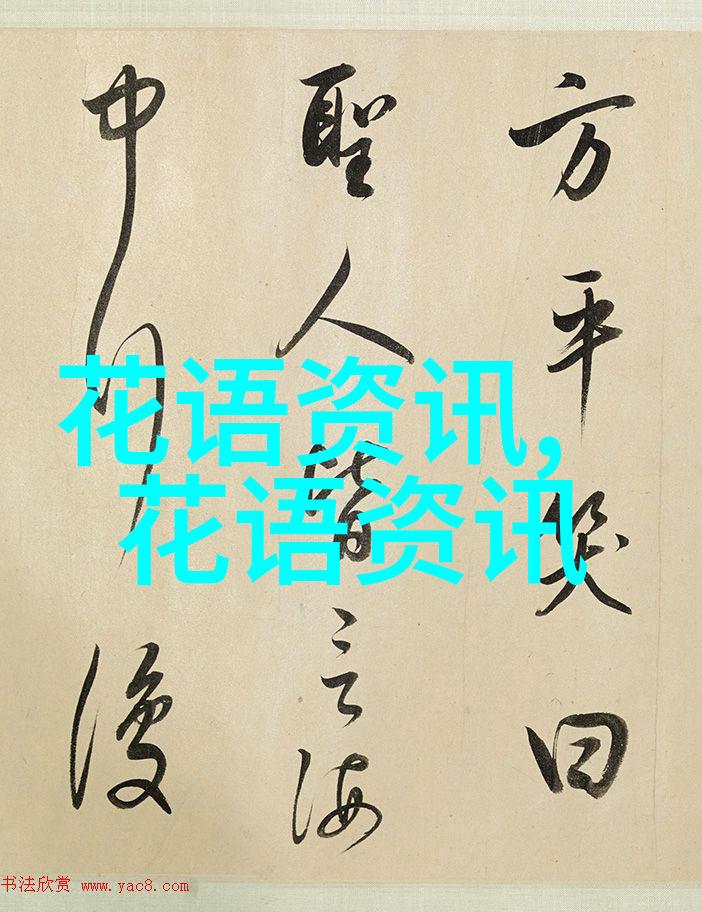 方平笑曰
聖人皆言海
中行復
花语资讯,
花语资讯
书法欣赏 www.yac8.com